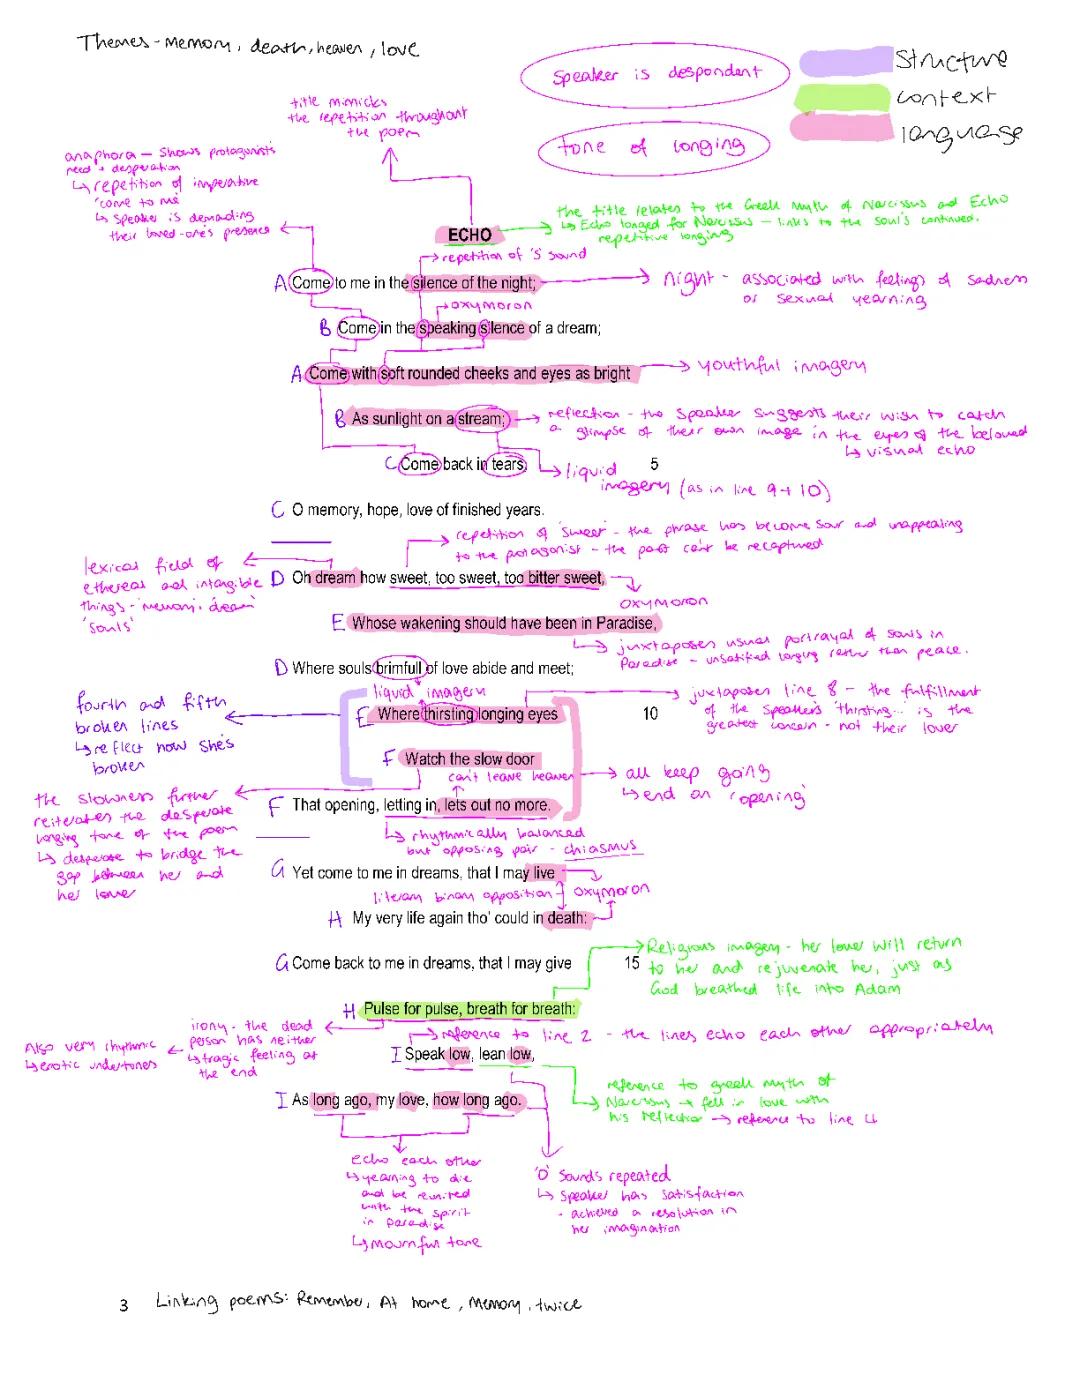 Themes - memory, death, heaven, love
Speaker is despondent
structure
context
language
tone of longing
title mimicks
the repetition throughout
the poem
anaphora - shows protagonists
need + desperation
↳ repetition of imperative
'come to me'
↳ speaker is demanding
their loved-one's presence
the title relates to the Greek myth of Narcissus and Echo
↳ Echo longed for Narcissus - links to the soul's continued,
repetitive longing
ECHO
repetition of 's' sound
A Come to me in the silence of the night;
night - associated with feelings of sadness
or sexual yearning
oxymoron
B Come in the speaking silence of a dream;
A Come with soft rounded cheeks and eyes as bright
youthful imagery
B As sunlight on a stream;
reflection - the speaker suggests their wish to catch
a glimpse of their own image in the eyes of the beloved
↳ visual echo
C Come back in tears, 5
liquid
imagery (as in line 9 + 10)
C O memory, hope, love of finished years.
repetition of 'sweet' - the phrase has become sour and unappealing
to the protagonist - the past can't be recaptured
lexical field of
ethereal and intangible
things - 'memory, dream'
'souls'
D Oh dream how sweet, too sweet, too bitter sweet,
oxymoron
E Whose wakening should have been in Paradise,
juxtaposes usual portrayal of souls in
Paradise - unsatisfied longing rather than peace.
D Where souls brimfull of love abide and meet;
liquid imagery
juxtaposes line 8 - the fulfillment
of the speaker's 'thirsting...' is the
greatest concern - not their lover
fourth and fifth
broken lines
↳ reflect how she's
broken
E Where thirsting longing eyes 10
F Watch the slow door
can't leave heaven
all keep going
↳ end on 'opening'
the slowness further
reiterates the desperate
longing tone of the poem
↳ desperate to bridge the
gap between her and
her lover
F That opening, letting in, lets out no more.
↳ rhythmically balanced
but opposing pair - chiasmus
G Yet come to me in dreams, that I may live
literary binary opposition
oxymoron
H My very life again tho' could in death:
Religious imagery - her lover will return
to her and rejuvenate her, just as
God breathed life into Adam
G Come back to me in dreams, that I may give 15
H Pulse for pulse, breath for breath:
irony - the dead
person has neither
↳ tragic feeling at
the end
Also very rhythmic
↳ erotic undertones
reference to line 2 - the lines echo each other appropriately
I Speak low, lean low,
reference to greek myth of
Narcissus → fell in love with
his reflection → reference to line 4
I As long ago, my love, how long ago.
echo each other
↳ yearning to die
and be reunited
with the spirit
in paradise
↳ mournful tone
'O' sounds repeated
↳ speaker has satisfaction
- achieved a resolution in
her imagination
3 Linking poems: Remember, At home, Memory, twice